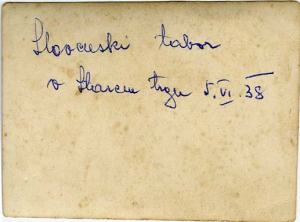 Slovenski tabor
v Starem trgu 5. VI. 38